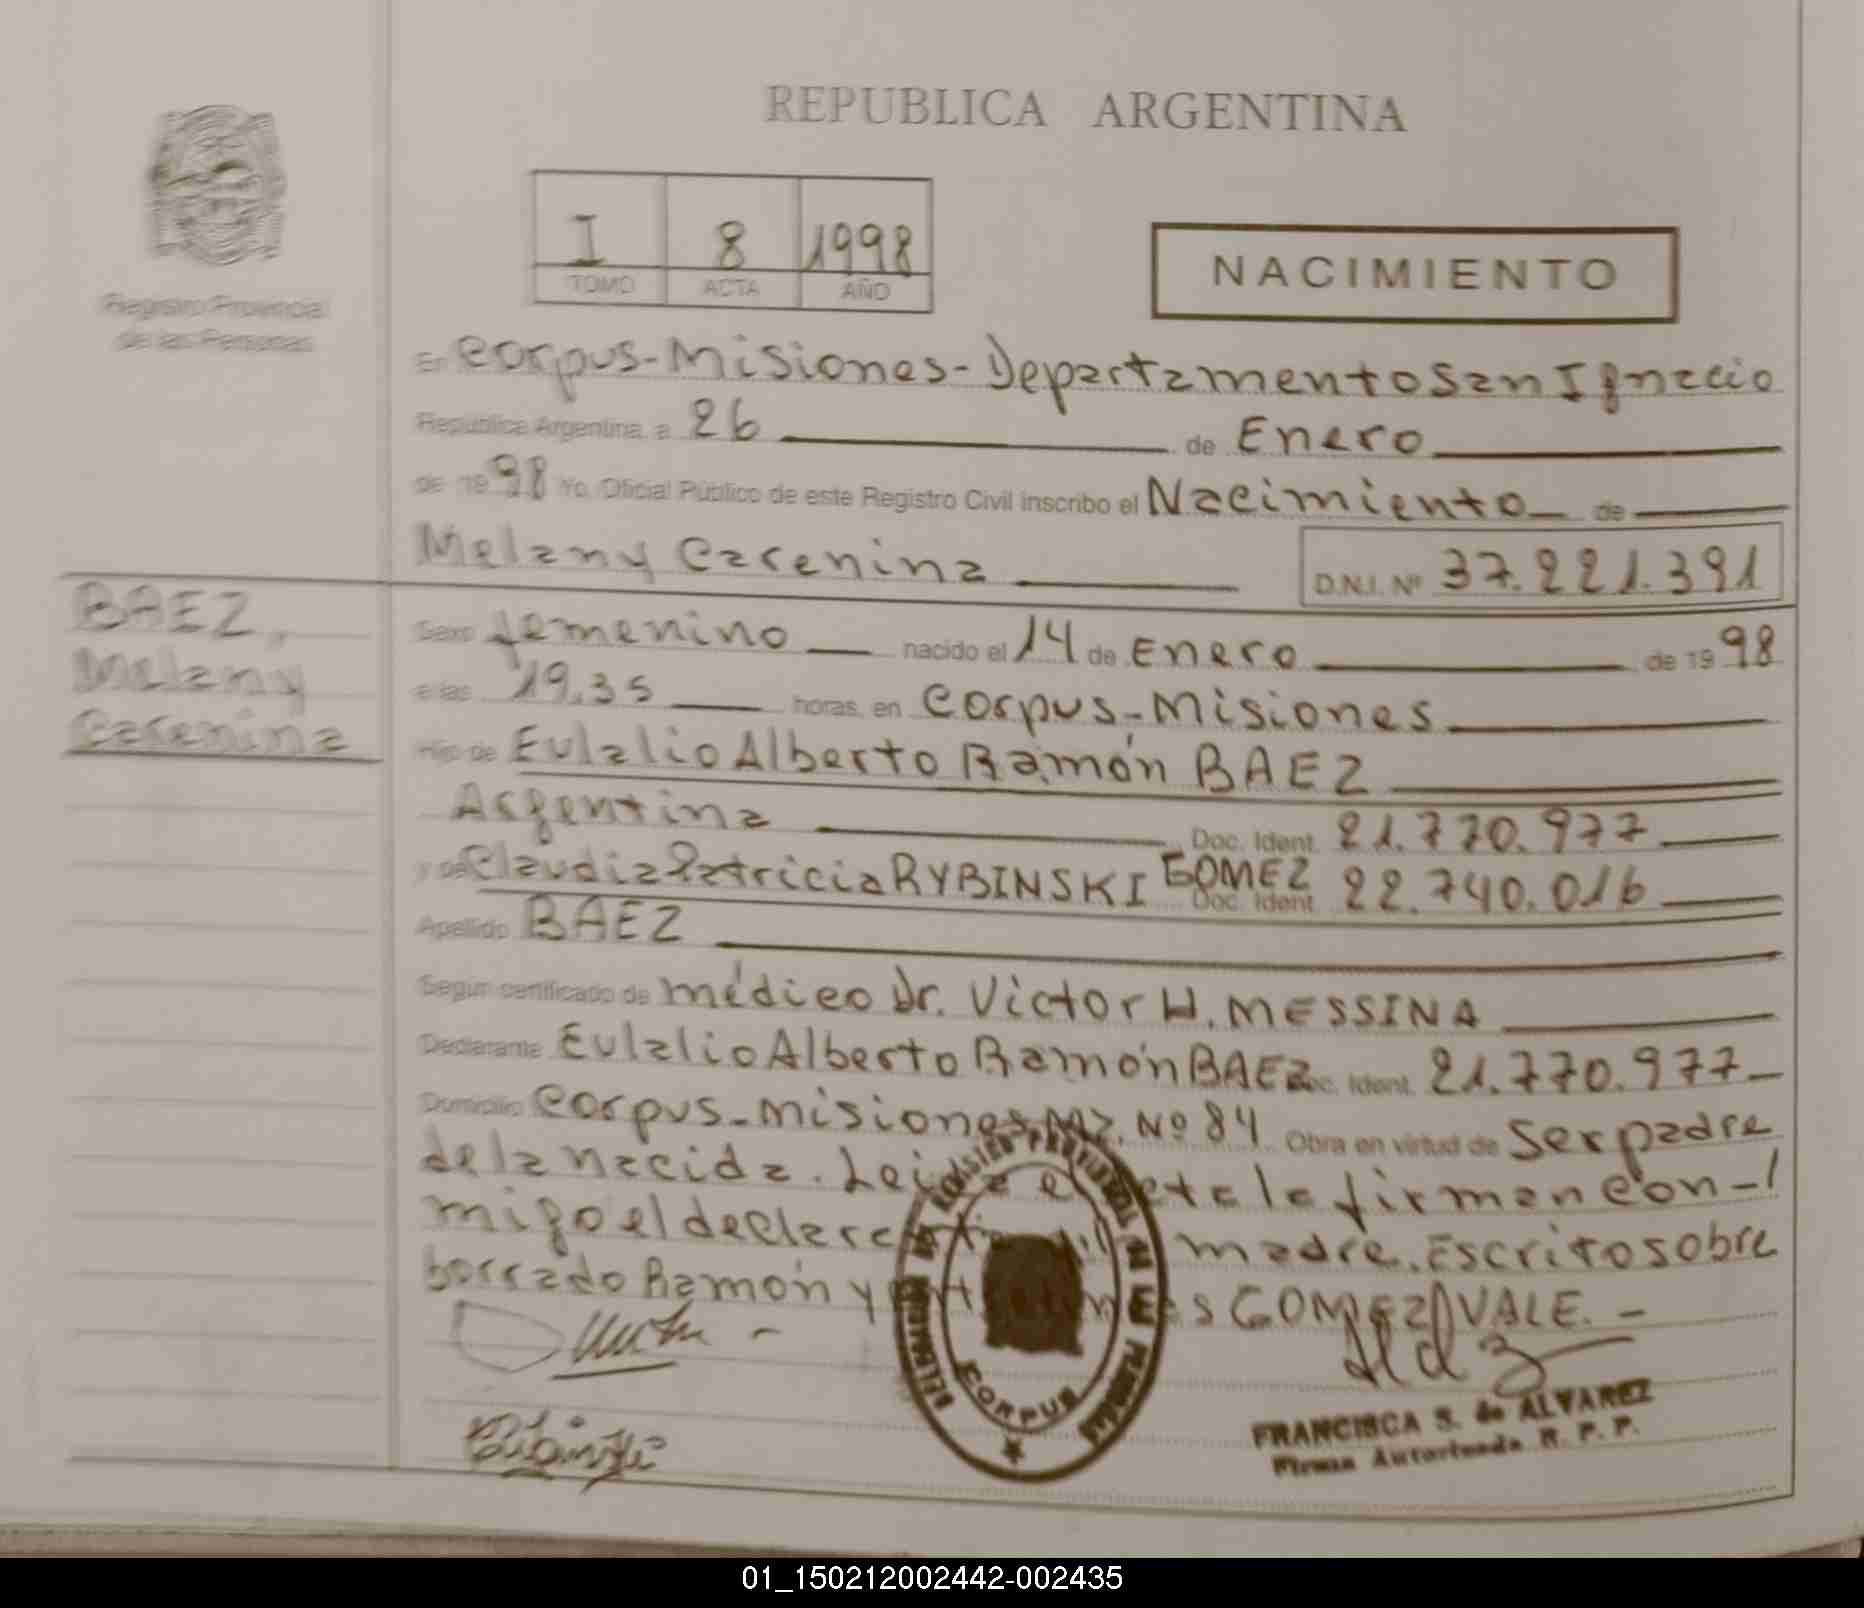 REPUBLICA ARGENTINA
Registro Provincial
de las Personas
I 8 1998
TOMO ACTA AÑO
NACIMIENTO
En Corpus-Misiones-Departamento San Ignacio
República Argentina, a 26 de Enero
de 1998 Yo, Oficial Público de este Registro Civil inscribo el Nacimiento de
Melany Carenina D.N.I. Nº 37.221.391
BAEZ,
Melany
Carenina
Sexo femenino nacido el 14 de Enero de 1998
a las 19,35 horas, en Corpus-Misiones
Hijo de Eulalio Alberto Ramón BAEZ
Argentina Doc. Ident. 21.770.977
y de Claudia Patricia RYBINSKI GOMEZ Doc. Ident. 22.740.016
Apellido BAEZ
Según certificado de médico Dr. Victor H. MESSINA
Declarante Eulalio Alberto Ramón BAEZ Doc. Ident. 21.770.977-
Domicilio Corpus-Misiones, Mz. Nº 84 Obra en virtud de ser padre
de la nacida. Leida el acta la firman con-
migo el declarante madre. Escrito sobre
borrado Ramón y GOMEZ VALE.-
CORPUS
FRANCISCA S. de ALVAREZ
Firma Autorizada R. P. P.
01_150212002442-002435